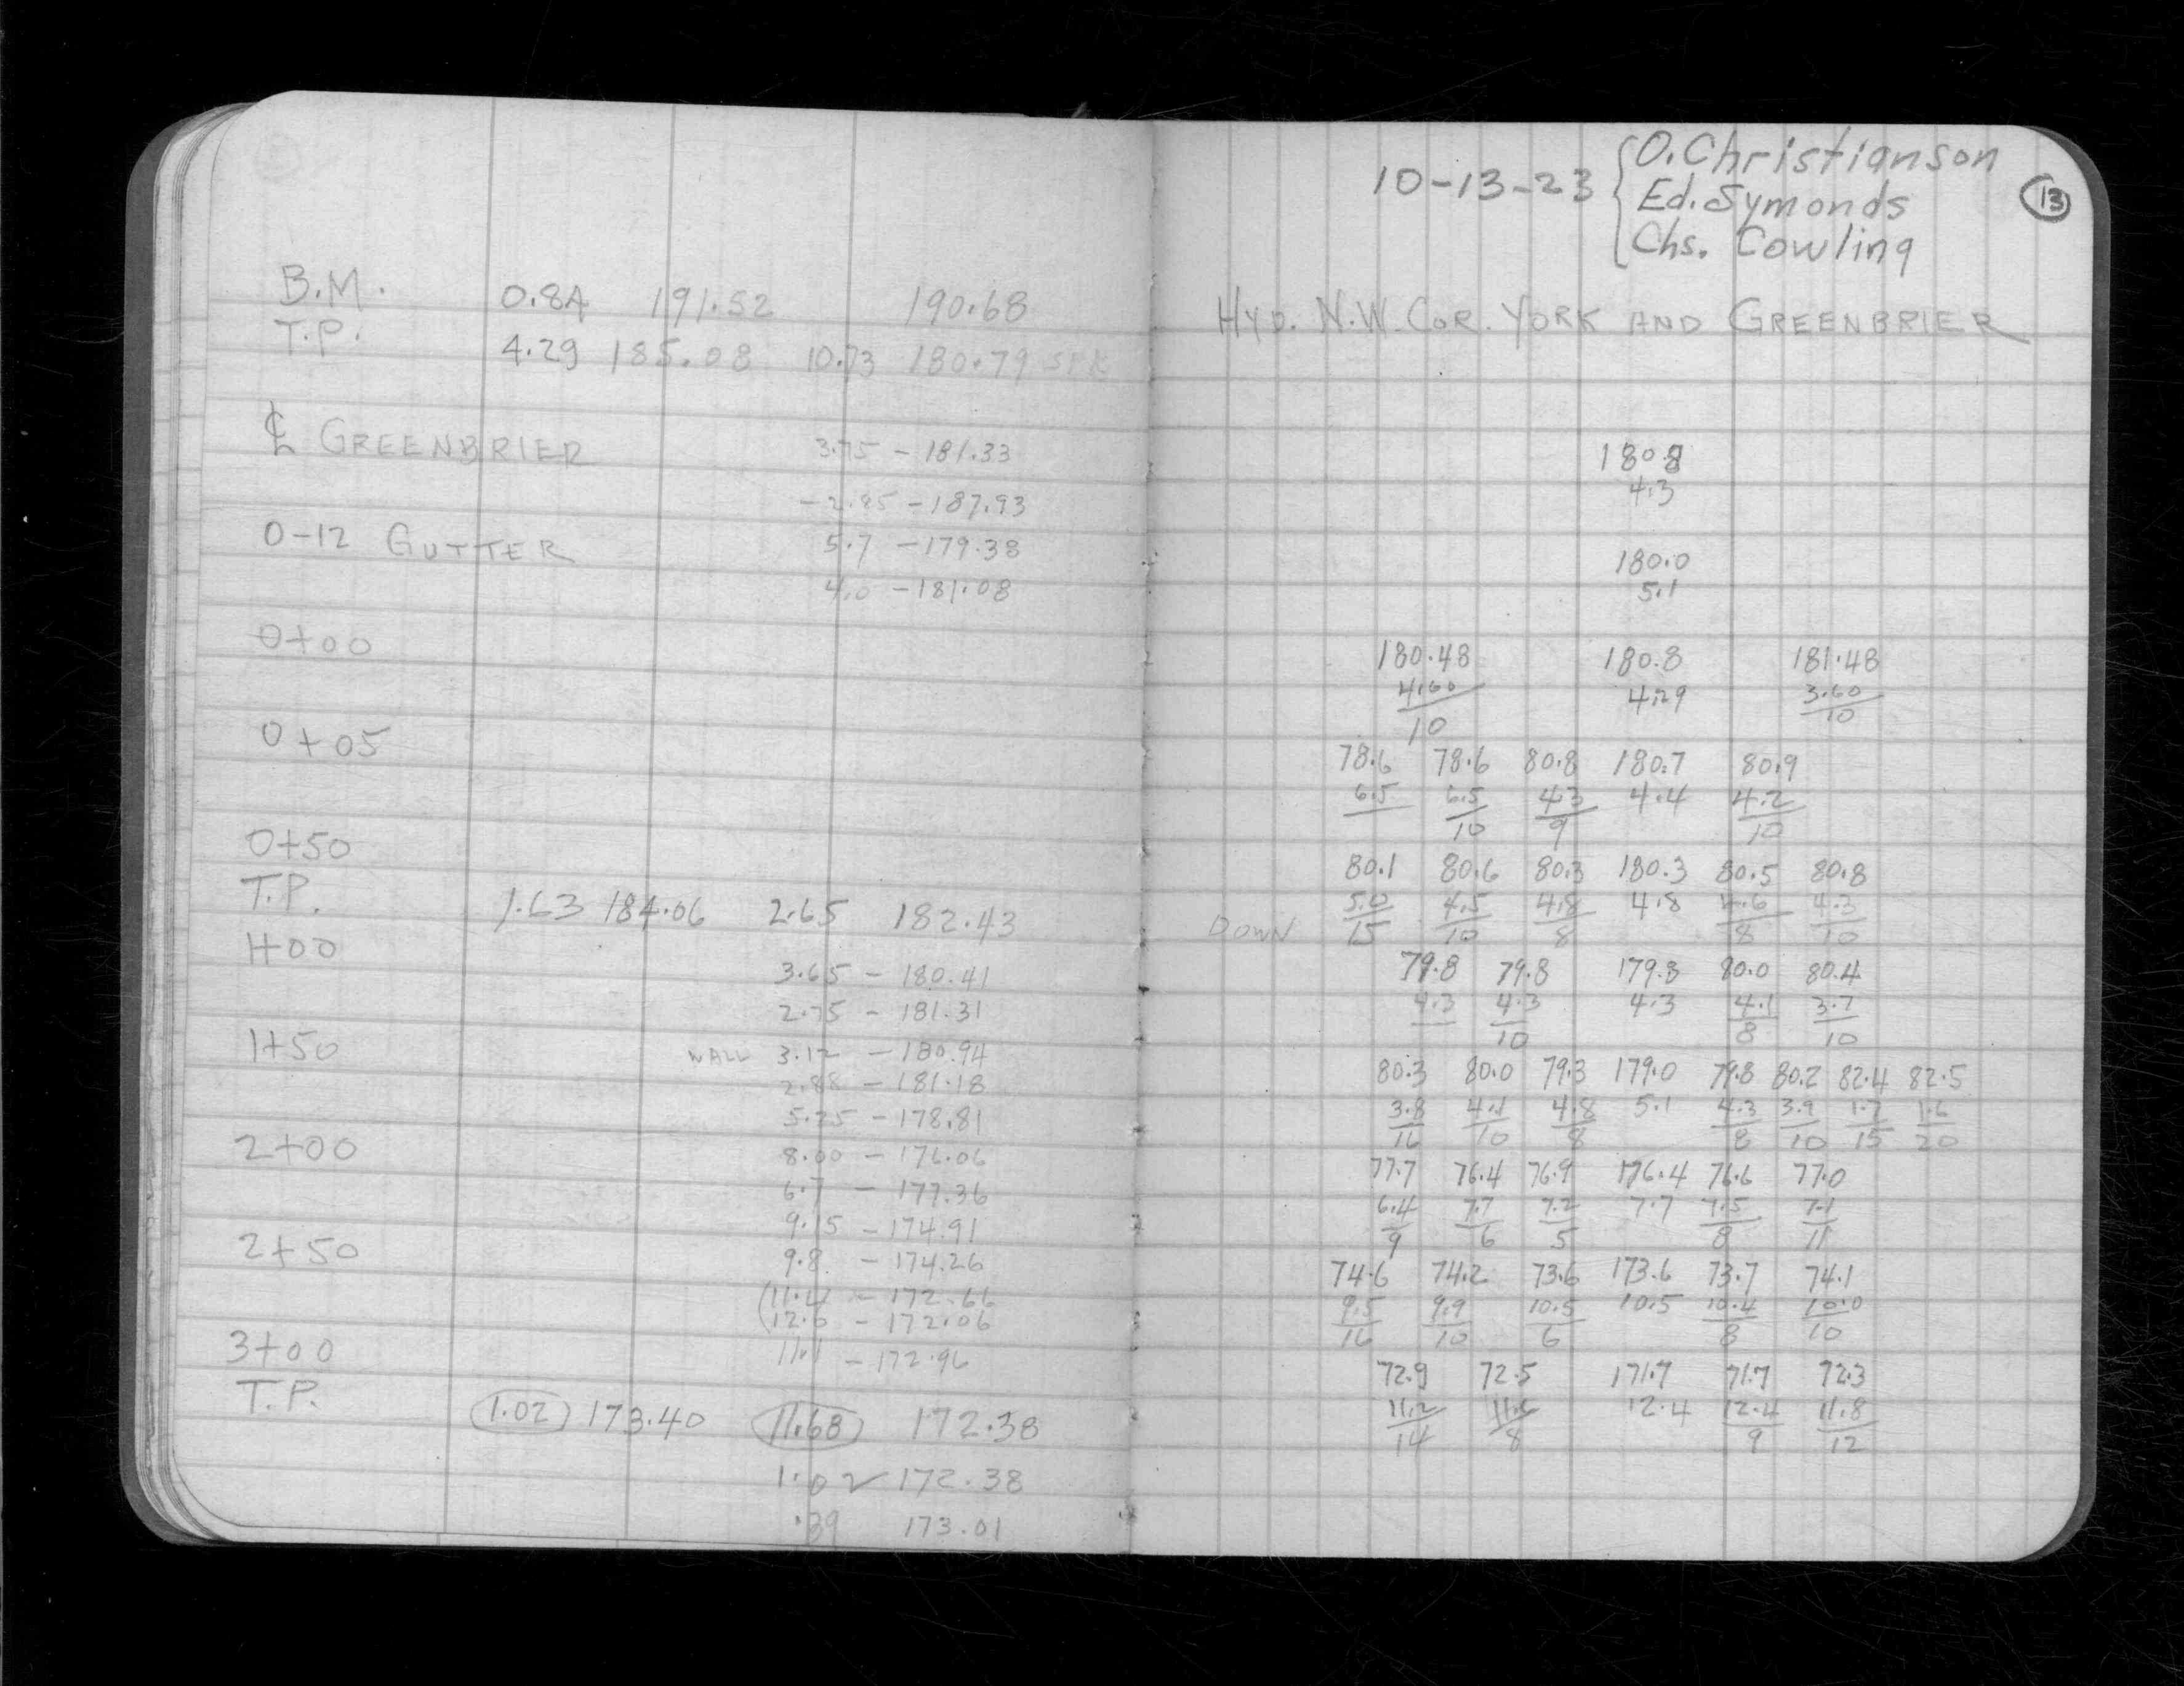 B.M. 0.84 191.52 190.68
T.P. 4.29 185.08 10.73 180.79 SPK
℄ GREENBRIER 3.75 - 181.33
-2.85 - 187.93
0-12 GUTTER 5.7 - 179.38
4.0 - 181.08
0+00
0+05
0+50
T.P. 1.63 184.06 2.65 182.43
1+00
3.65 - 180.41
2.75 - 181.31
1+50 WALL 3.12 - 180.94
2.88 - 181.18
5.25 - 178.81
2+00 8.00 - 176.06
6.7 - 177.36
9.15 - 174.91
2+50 9.8 - 174.26
(11.4) - 172.66
(12.0 - 172.06
3+00 11.1 - 172.96
T.P. 1.02 173.40 11.68 172.38
1.02 ✓ 172.38
.39 173.01
10-13-23 { O. Christianson
Ed. Symonds
Chs. Cowling
13
HYD. N.W. COR. YORK AND GREENBRIER
180.8
4.3
180.0
5.1
180.48 180.8 181.48
4.60 4.29 3.60
10 10
78.6 78.6 80.8 180.7 80.9
6.5 6.5 4.3 4.4 4.2
10 9 10
80.1 80.6 80.3 180.3 80.5 80.8
DOWN 5.0 4.5 4.8 4.8 4.6 4.3
15 10 8 8 10
79.8 79.8 179.8 80.0 80.4
4.3 4.3 4.3 4.1 3.7
10 8 10
80.3 80.0 79.3 179.0 79.8 80.2 82.4 82.5
3.8 4.1 4.8 5.1 4.3 3.9 1.7 1.6
16 10 8 8 10 15 20
77.7 76.4 76.9 176.4 76.6 77.0
6.4 7.7 7.2 7.7 7.5 7.1
9 6 5 8 11
74.6 74.2 73.6 173.6 73.7 74.1
9.5 9.9 10.5 10.5 10.4 10.0
16 10 6 8 10
72.9 72.5 171.7 71.7 72.3
11.2 11.6 12.4 12.4 11.8
14 8 9 12